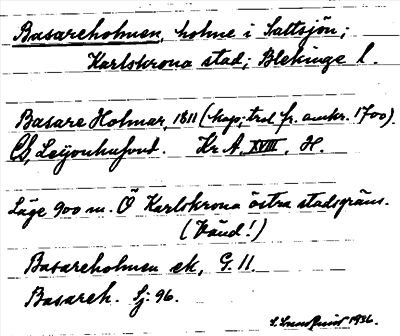 Basareholmen, holme i Saltsjön;
Karlskrona stad; Blekinge l.
Basare Holmar, 1811 (kopia; trol. fr. omkr. 1700).
Leijonhufvud. Kr. A. XVIII. H.
Läge 900 m. Ö Karlskrona östra stadsgräns.
(Vänd!)
Basareholmen ek, G. 11.
Basareh. Sj. 96.
1936.